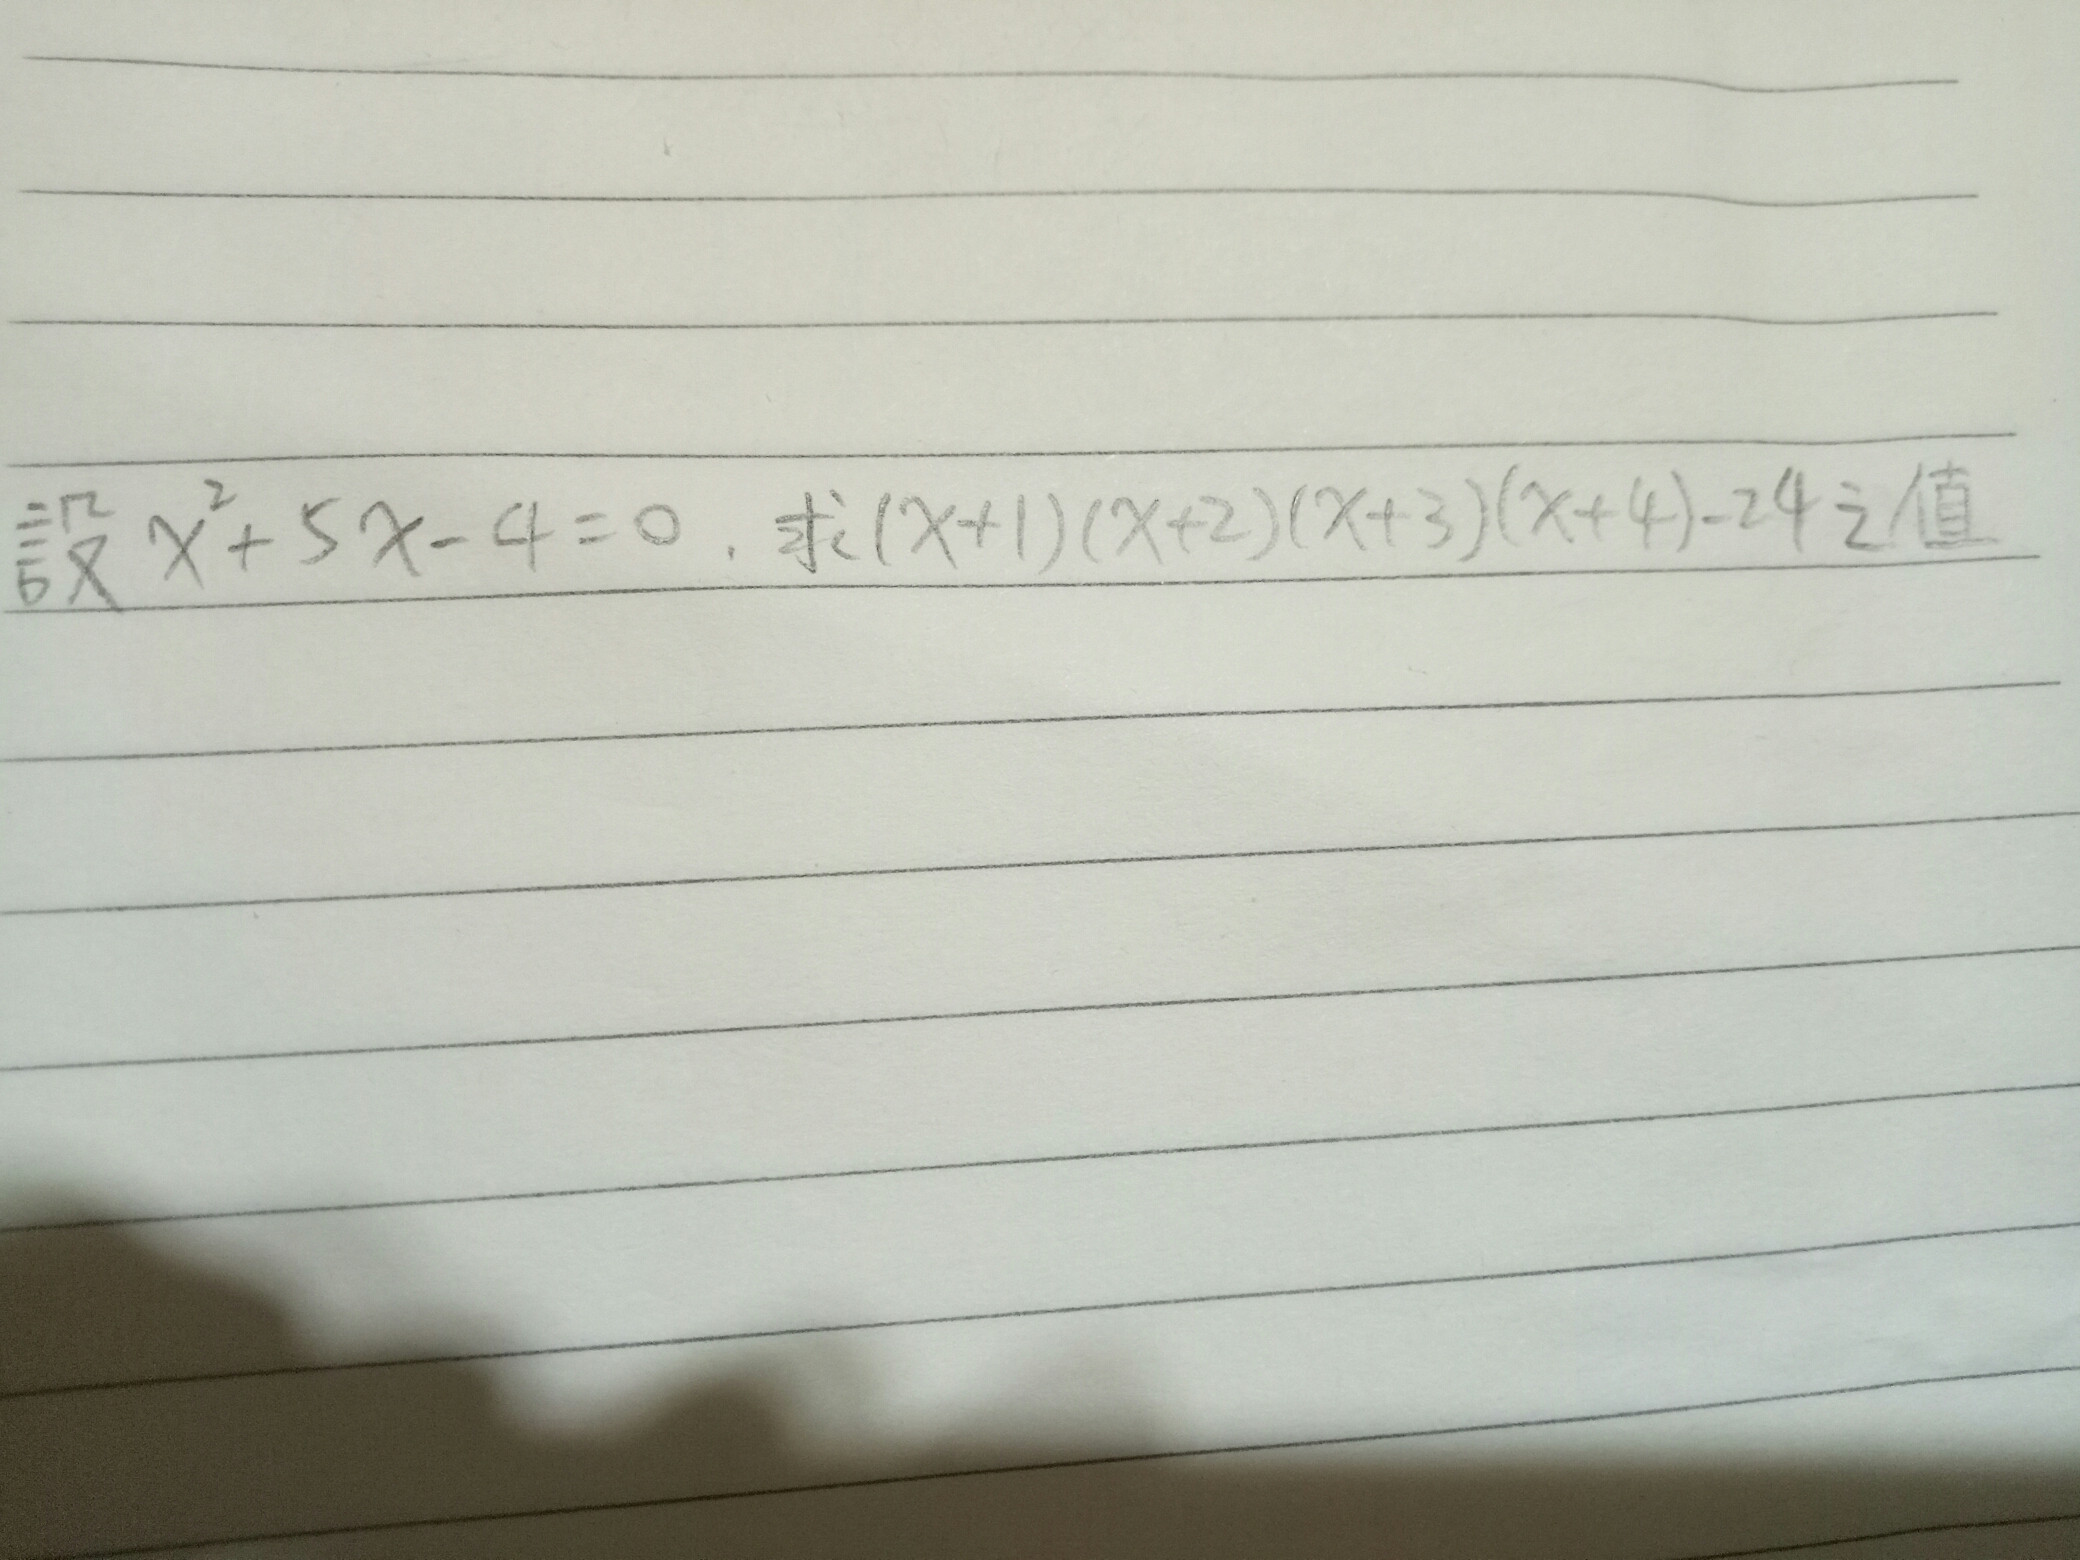 設 x²+5x-4=0. 求(x+1)(x+2)(x+3)(x+4)-24之值